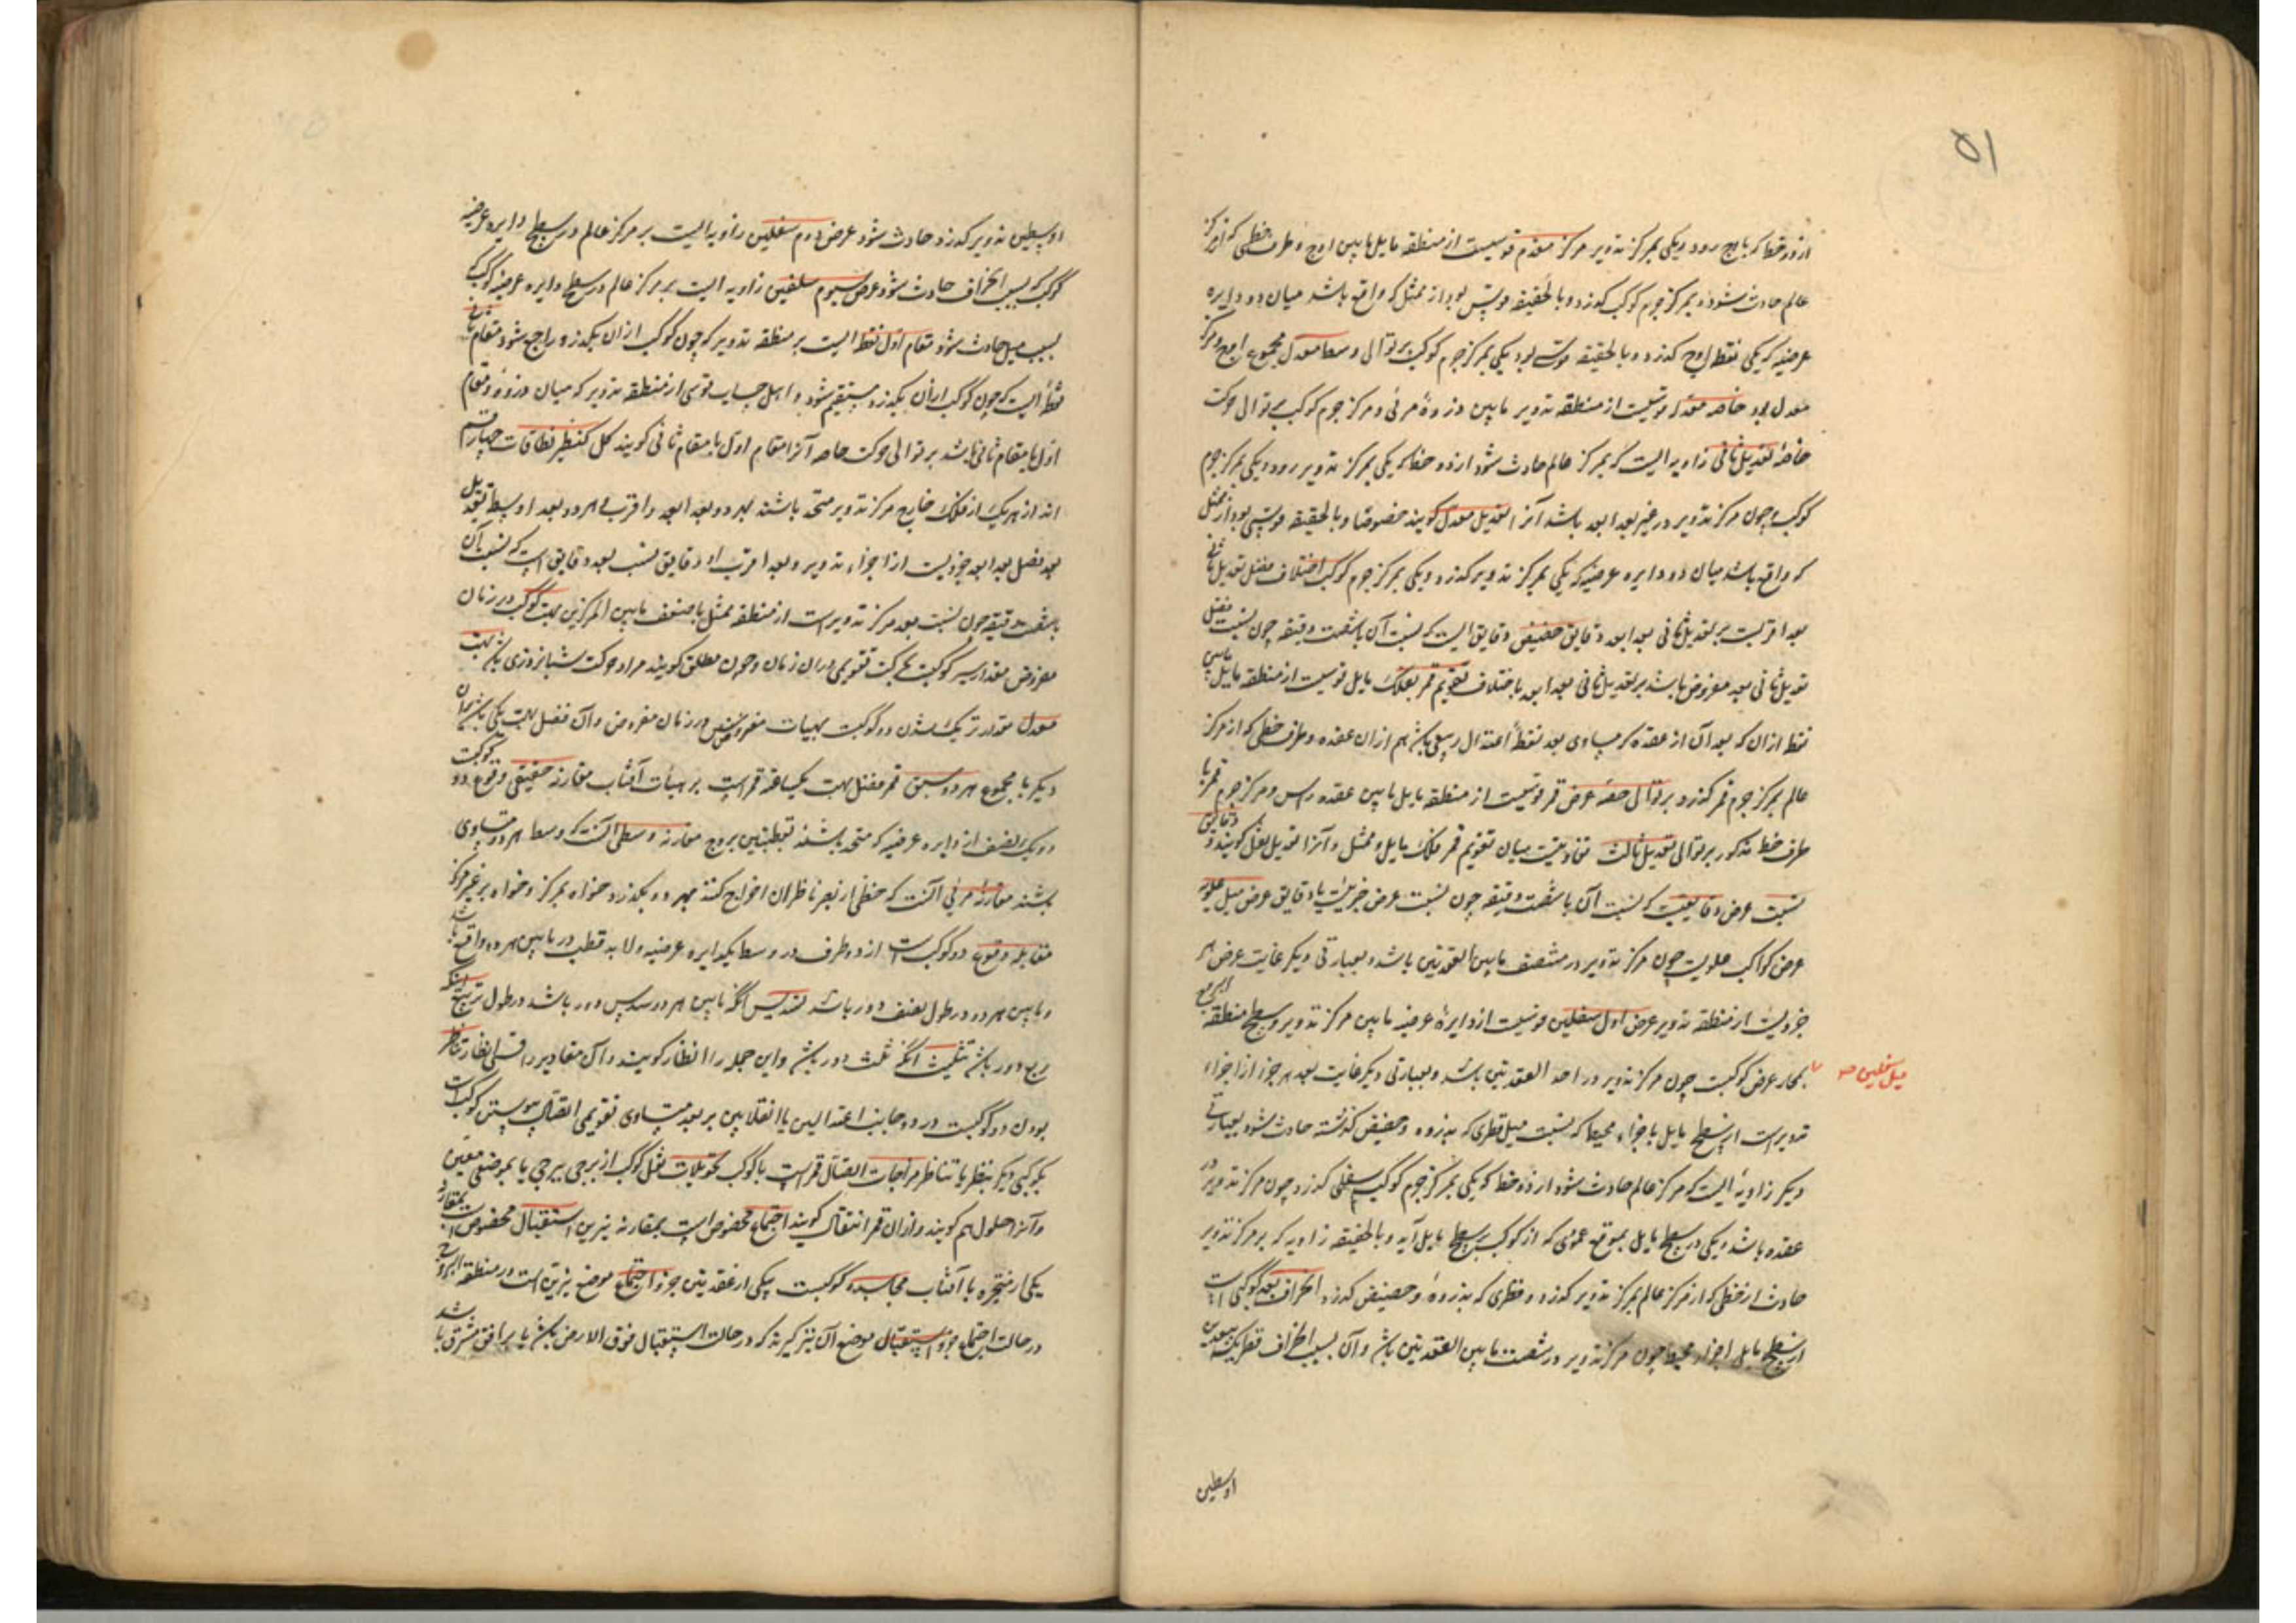 ۵۱
از دو خط که باوج رود ویکی بمرکز تدویر مرکز مقوم قوسیست از منطقه مایل مابین اوج و طرف خطی که از مرکز
عالم حادث شود و بمرکز جرم کوکب کذرد و بالحقیقه قوسی بود از ممثل که واقع باشد میان دو دایره
عرضیه که یکی بنقطه اوج کذرد و بالحقیقه قوسی بود یکی بمرکز جرم کوکب بر توالی وسط معدل مجموع اوج و مرکز
معدل بود خاصه معدله قوسیست از منطقه تدویر مابین ذروهٔ مرئی و مرکز جرم کوکب بر توالی حرکت
خاصهٔ تعدیل ثانی زاویه ایست که بمرکز عالم حادث شود از دو خط که یکی بمرکز تدویر رود ویکی بمرکز جرم
کوکب و چون مرکز تدویر در غیر بعد ابعد باشد آنرا تعدیل معدل کویند خصوصا و بالحقیقه قوسی بود از ممثل
که واقع باشد میان دو دایره عرضیه که یکی بمرکز تدویر کذرد ویکی بمرکز جرم کوکب اختلاف فضل تعدیل ثانی
بعد اقربست بر تعدیل ثانی بعد ابعد دقایق حضیض دقایق ایست که نسبت آن باشصت دقیقه چون نسبت فضل
تعدیل ثانی بعد مفروض باشد بر تعدیل ثانی بعد ابعد باختلاف تقویم قمر بفلک مایل قوسیست از منطقه مایل مابین
نقطهٔ ازان که بعد آن از عقده کمساوی بعد نقطهٔ اعتدال ربیعی باشد هم ازان عقده و طرف خطی که از مرکز
عالم بمرکز جرم قمر کذرد بر توالی حصه عرض قمر قوسیست از منطقه مایل مابین عقده راس و مرکز جرم قمر با
طرف خط مذکور بر توالی تعدیل ثالث تفاوتیست میان تقویم قمر بفلک مایل و ممثل و آنرا تعدیل نقل کویند و دقایق
نسبت عرض دقایقیست که نسبت آن باشصت دقیقه چون نسبت عرض جزئیست با دقایق عرض میل علویه
عرض کواکب علویست چون مرکز تدویر در منتصف مابین العقدتین باشد و بعبارتی دیکر غایت عرض هر
جزویست از منطقه تدویر عرض اول سفلیین قوسیست از دایرهٔ عرضیه مابین مرکز تدویر و سطح منطقه البروج
میل سفلیین صح
بمحار عرض کوکبست چون مرکز تدویر در احد العقدتین باشد و بعبارتی دیکر غایت بعد هر جزء از اجزاء
تدویرست از سطح مایل باجزاء محیط که نسبت میل قطری که بذروه و حضیض کذشته حادث شود بعبارتی
دیکر زاویهٔ ایست که مرکز عالم حادث شود از دو خط که یکی بمرکز جرم کوکب سفلی کذرد چون مرکز تدویر در
عقده باشد ویکی در سطح مایل بموقع عمودی که از کوکب بر سطح مایل آید و بالحقیقه زاویه که بر مرکز تدویر
حادث از خطی که از مرکز عالم بمرکز تدویر کذرد و قطری که بذروهٔ و حضیض کذرد انحراف بعد کوکبی است
از سطح مایل اجزاء محیط چون مرکز تدویر در منتصف مابین العقدتین باشد و آن بسبب انحراف قطریکه ببعدین
اوسطین
اوسطین تدویر کذرد حادث شود عرض دوم سفلیین زاویه ایست بر مرکز عالم در سطح دایره عرضیه
کوکب که بسبب انحراف حادث شود عرض سیوم سفلیین زاویه ایست بر مرکز عالم در سطح دایره عرضیه کوکب که
بسبب میل حادث شود مقام اول نقطهٔ ایست بر منطقه تدویر که چون کوکب ازان بکذرد راجع شود مقام ثانی
نقطهٔ ایست که چون کوکب ازان بکذرد مستقیم شود و اهل حساب قوسی از منطقه تدویر که میان ذروه و مقام
اول یا مقام ثانی باشد بر توالی حرکت خاصه آنرا مقام اول یا مقام ثانی کویند کل کنظیر نطاقات چهار قسم
اند از هریک از فلک خارج مرکز تدویر متحد باشند بهر دو بعد ابعد و اقرب و هر دو بعد اوسط تعدیل
بعد فضل بعد ابعد جزویست از اجزاء تدویر و بعد اقرب او دقایق نسب بعد دقایق است که نسبت آن
باشصت دقیقه چون نسبت بعد مرکز تدویر است از منطقه ممثل با ضعف مابین المرکزین بهت کوکب در زمان
مفروض مقدار سیر کوکبست بحرکت تقویمی دران زمان و چون مطلق کویند مراد حرکت شبانروزی باشد بهت
معدل مقدار نزدیک شدن دو کوکبست بهیات مفروض در زمان مفروض و آن فضل بهت یکی باشد بران
دیکر یا مجموع هر دو سبق قمر فضل بهت یکساعته قمر است بر بهت آفتاب مقارنه حقیقی وقوع دو کوکبست
در یک نصف از دایره عرضیه که متحد باشند بقطبین بروج مقارنه وسطی آنست که وسط هر دو متساوی
باشند مقارنهٔ مرئی آنست که خطی از بصر ناظران اخراج کنند بهر دو بکذرد خواه بمرکز و خواه بر غیر مرکز
مقابله وقوع دو کوکبست از دو طرف در وسط یکدایره عرضیه ولا بد قطب در مابین هر دو واقع باشد
و مابین هر دو در طول نصف دور باشد تسدیس آنکه مابین هر دو سدس دور باشد در طول تربیع آنکه
ربع دور باشد تثلیث آنکه ثلث دور باشد و این جمله را انظار کویند و آن مقادیر را قسی انظار تناظر
بودن دو کوکبست در دو جانب اعتدالین یا انقلابین بر بعد متساوی تقویمی اتصال پیوستن کوکبست
بکوکبی دیکر بنظر یا تناظر مزاجات اتصال قمر است با کوکب تحویلات نقل کوکب از برجی ببرجی یا بموضعی معین
و آنرا حلول هم کویند و ازان قمر انتقال کویند اجتماع مخصوص است بمقارنه نیرین استقبال مخصوص است بمقارنه
یکی از متحیره با آفتاب مجاسده کوکبست بیکی از عقدتین جزو اجتماع موضع نیرین است در منطقه البروج
در حالت اجتماع جزو استقبال موضع آن نیر کیرند که در حالت استقبال فوق الارض باشد یا بر افق مشرق باشد